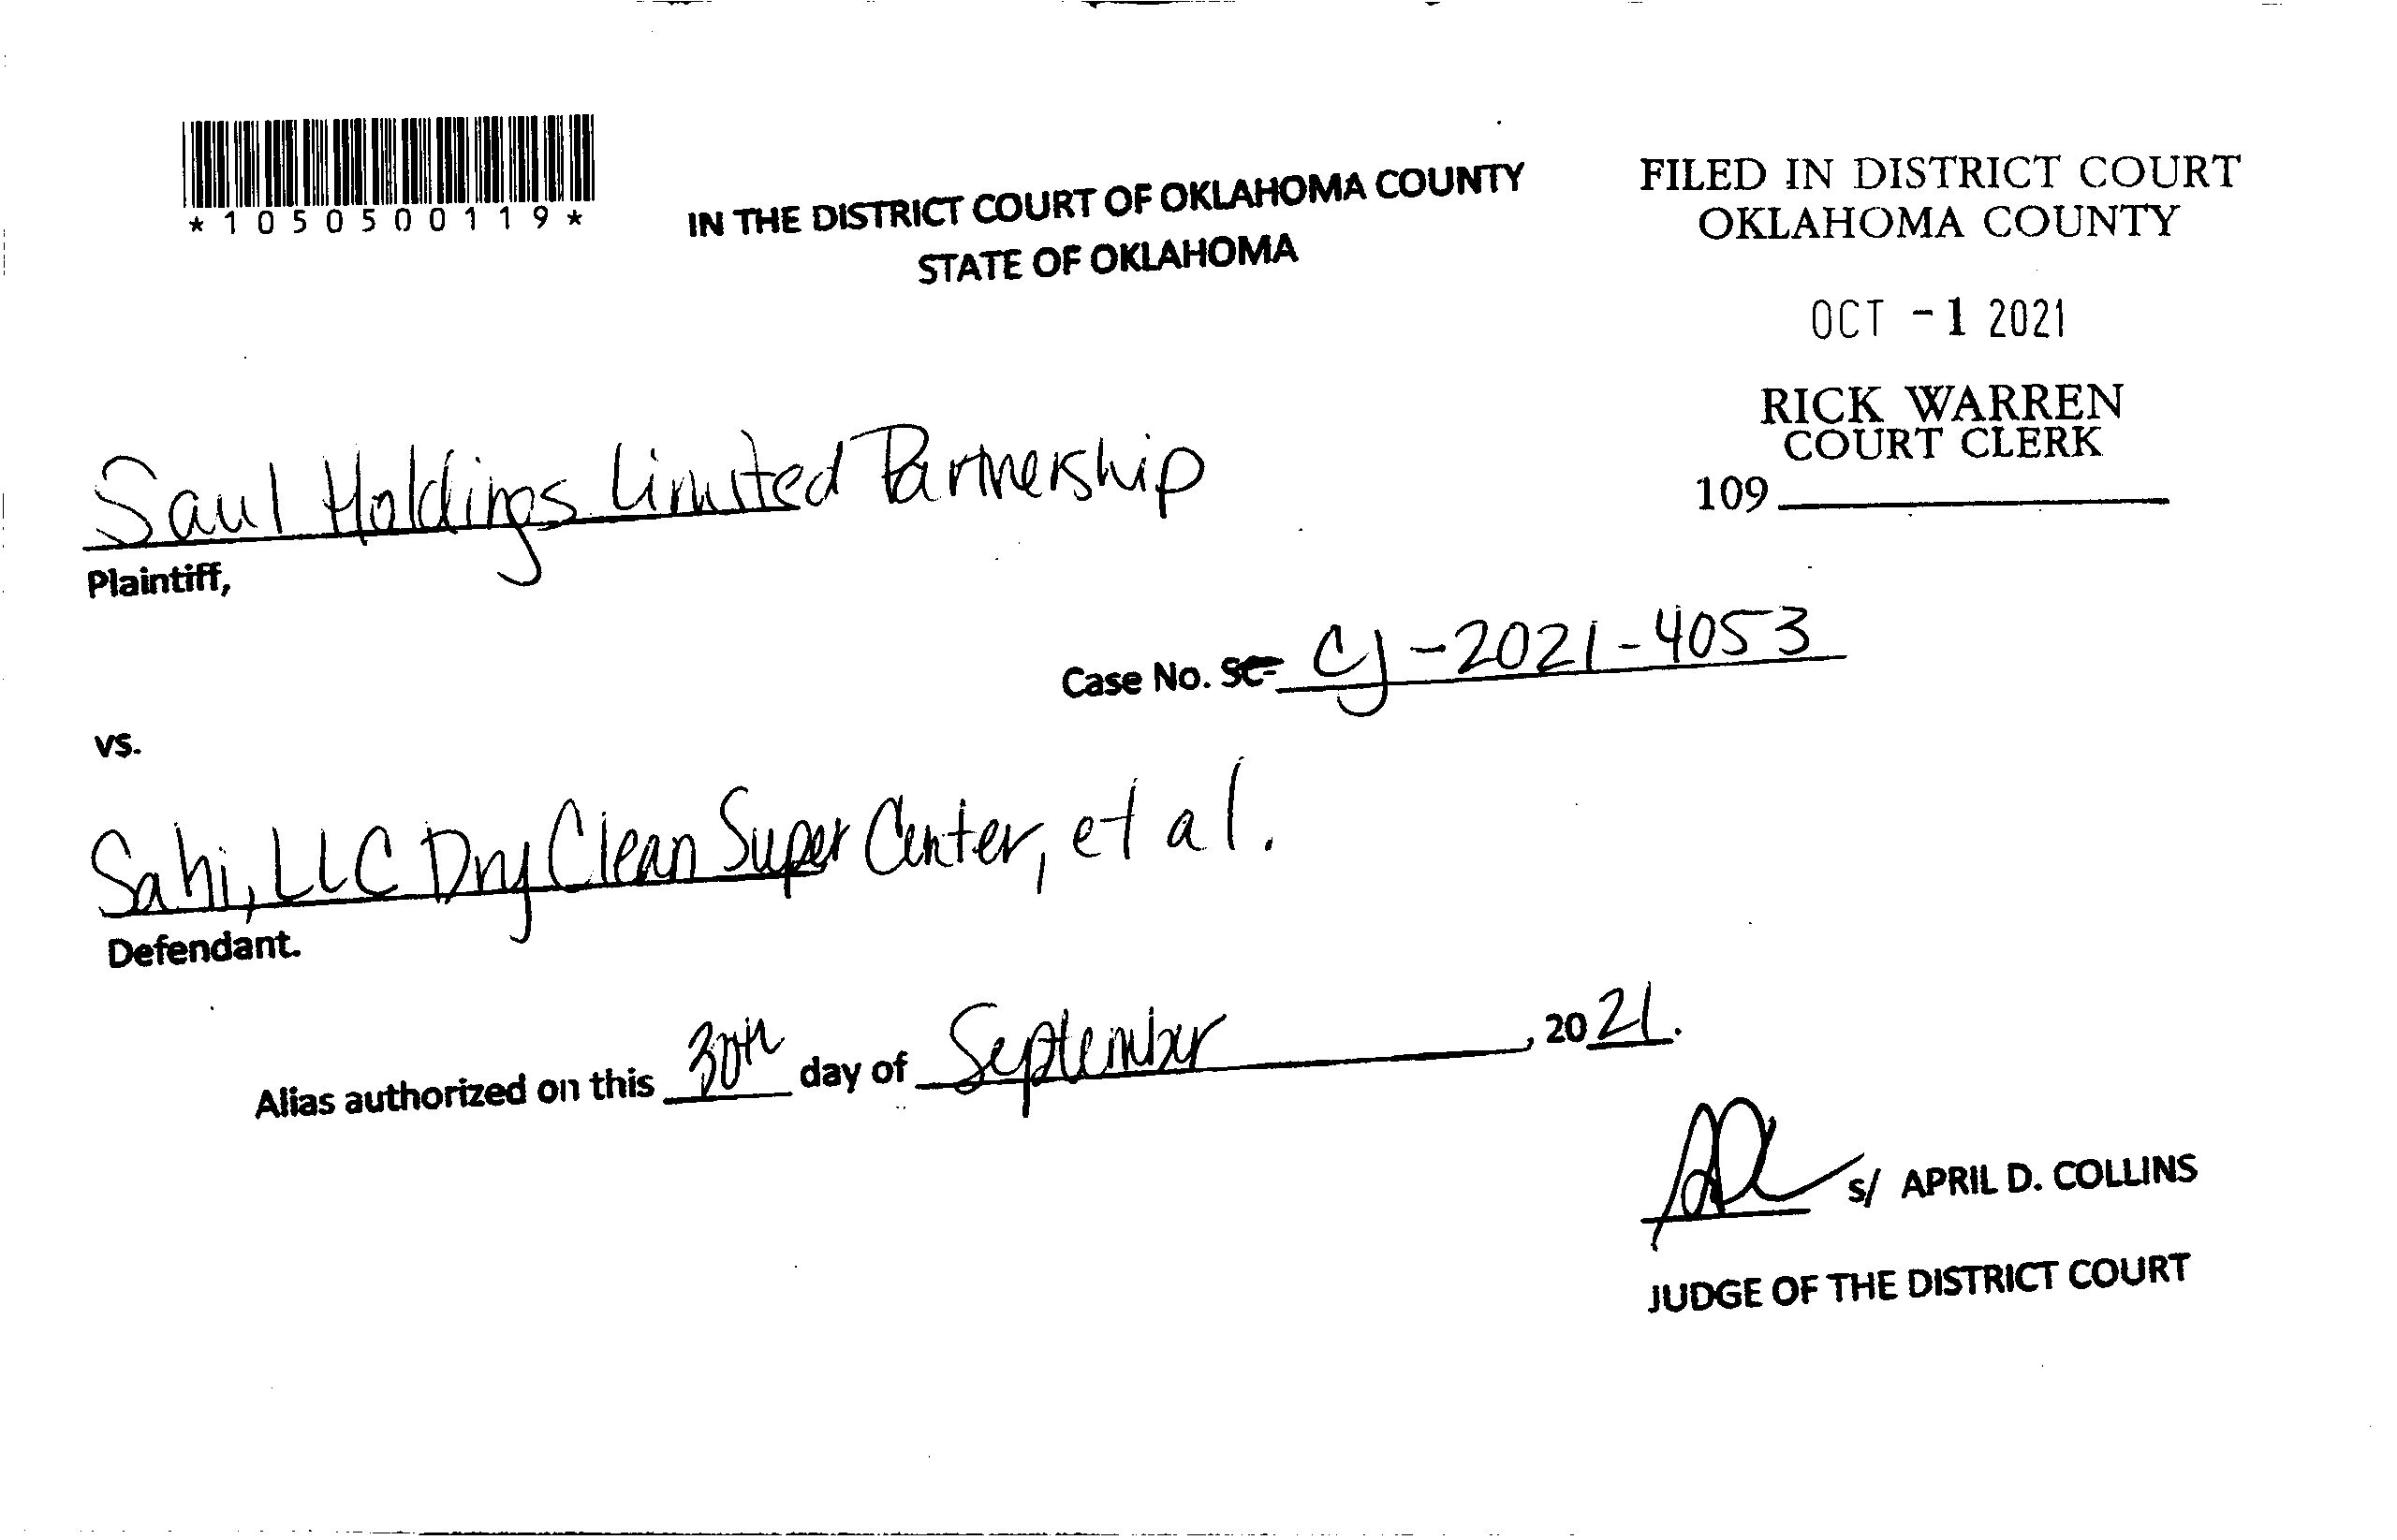 *1050500119*
IN THE DISTRICT COURT OF OKLAHOMA COUNTY
STATE OF OKLAHOMA
FILED IN DISTRICT COURT
OKLAHOMA COUNTY
OCT - 1 2021
RICK WARREN
COURT CLERK
109
Saul Holdings Limited Partnership
Plaintiff,
Case No. SC- CJ-2021-4053
vs.
Sahi, LLC Dry Clean Super Center, et al.
Defendant.
Alias authorized on this 30th day of September, 2021.
s/ APRIL D. COLLINS
JUDGE OF THE DISTRICT COURT